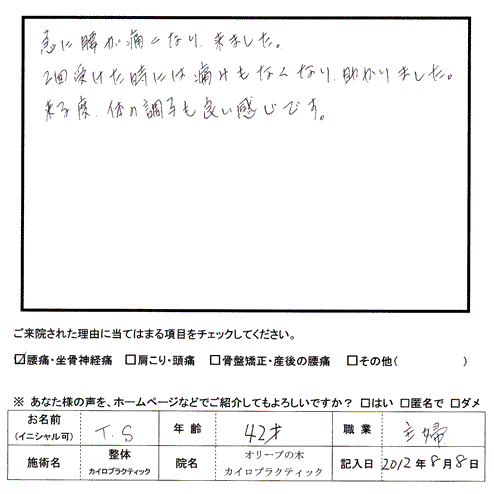 急に腰が痛くなり、来ました。
2回受けた時には、痛みもなくなり、助かりました。
来る度、体の調子も良い感じです。
ご来院された理由に当てはまる項目をチェックしてください。
☑腰痛・坐骨神経痛 □肩こり・頭痛 □骨盤矯正・産後の腰痛 □その他( )
※ あなた様の声を、ホームページなどでご紹介してもよろしいですか? □はい □匿名で □ダメ
お名前 (イニシャル可) T.S 年齢 42才 職業 主婦
施術名 整体 カイロプラクティック 院名 オリーブの木 カイロプラクティック 記入日 2012年8月8日